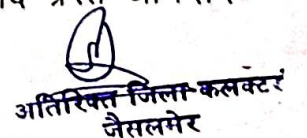 अतिरिक्त जिला कलक्टर
जैसलमेर